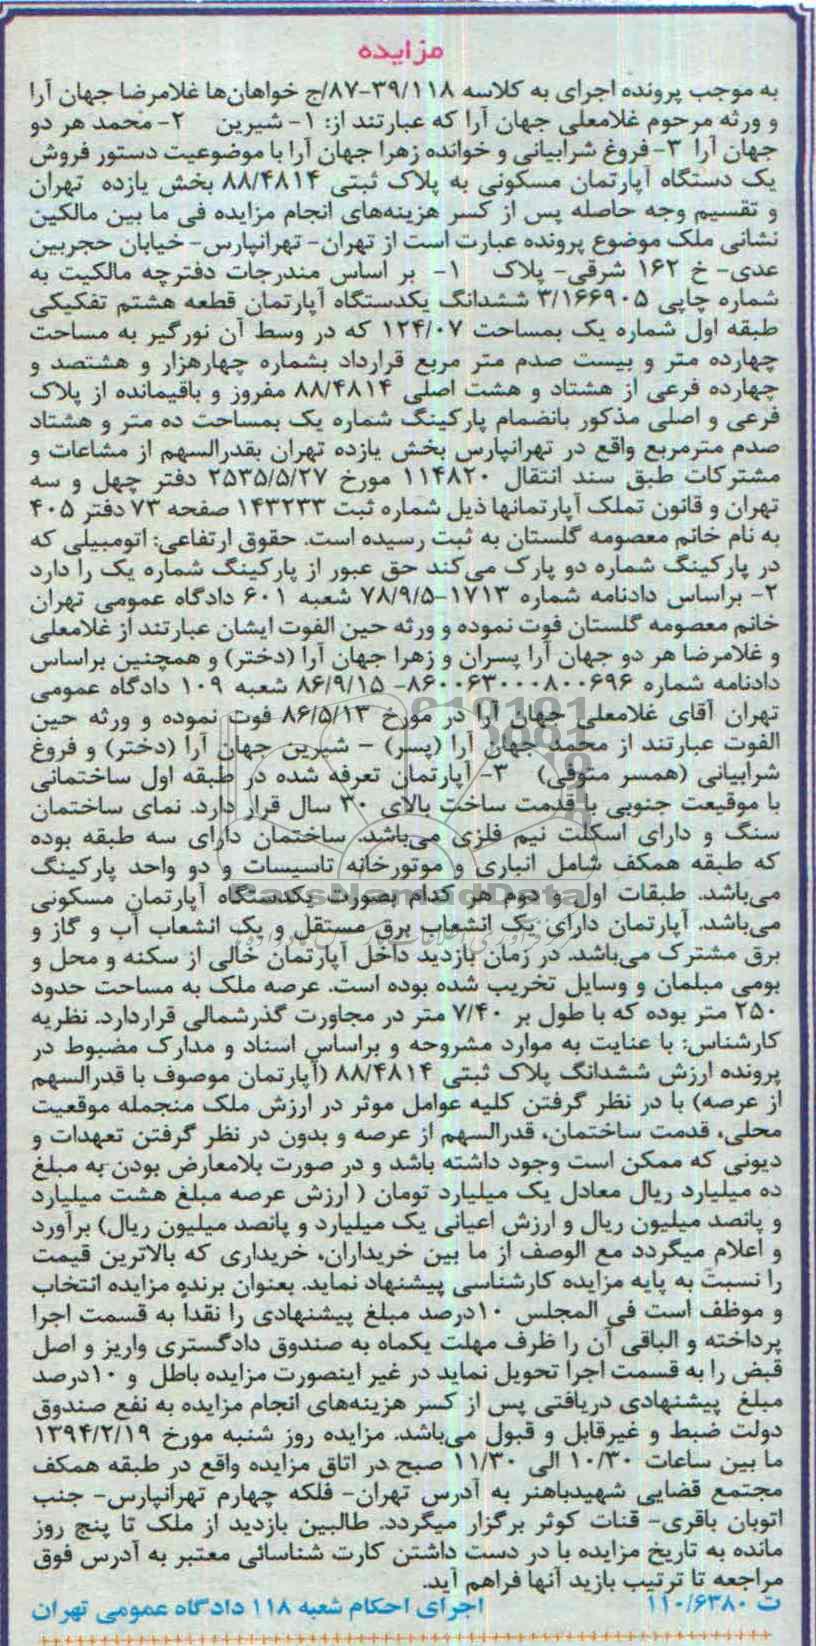 مزایده
به موجب پرونده اجرای به کلاسه ۳۹/۱۱۸-۸۷/ج خواهان‌ها غلامرضا جهان آرا
و ورثه مرحوم غلامعلی جهان آرا که عبارتند از: ۱- شیرین ۲- محمد هر دو
جهان آرا ۳- فروغ شرابیانی و خوانده زهرا جهان آرا با موضوعیت دستور فروش
یک دستگاه آپارتمان مسکونی به پلاک ثبتی ۸۸/۴۸۱۴ بخش یازده تهران
و تقسیم وجه حاصله پس از کسر هزینه‌های انجام مزایده فی ما بین مالکین
نشانی ملک موضوع پرونده عبارت است از تهران- تهرانپارس- خیابان حجربین
عدی- خ ۱۶۲ شرقی- پلاک ۱- بر اساس مندرجات دفترچه مالکیت به
شماره چاپی ۳/۱۶۶۹۰۵ ششدانگ یکدستگاه آپارتمان قطعه هشتم تفکیکی
طبقه اول شماره یک بمساحت ۱۲۴/۰۷ که در وسط آن نورگیر به مساحت
چهارده متر و بیست صدم متر مربع قرارداد بشماره چهارهزار و هشتصد و
چهارده فرعی از هشتاد و هشت اصلی ۸۸/۴۸۱۴ مفروز و باقیمانده از پلاک
فرعی و اصلی مذکور بانضمام پارکینگ شماره یک بمساحت ده متر و هشتاد
صدم مترمربع واقع در تهرانپارس بخش یازده تهران بقدرالسهم از مشاعات و
مشترکات طبق سند انتقال ۱۱۴۸۲۰ مورخ ۲۵۳۵/۵/۲۷ دفتر چهل و سه
تهران و قانون تملک آپارتمانها ذیل شماره ثبت ۱۴۳۲۳۳ صفحه ۷۳ دفتر ۴۰۵
به نام خانم معصومه گلستان به ثبت رسیده است. حقوق ارتفاعی: اتومبیلی که
در پارکینگ شماره دو پارک می‌کند حق عبور از پارکینگ شماره یک را دارد
۲- براساس دادنامه شماره ۱۷۱۳-۷۸/۹/۵ شعبه ۶۰۱ دادگاه عمومی تهران
خانم معصومه گلستان فوت نموده و ورثه حین الفوت ایشان عبارتند از غلامعلی
و غلامرضا هر دو جهان آرا پسران و زهرا جهان آرا (دختر) و همچنین براساس
دادنامه شماره ۸۶۰۰۶۳۰۰۰۸۰۰۶۹۶- ۸۶/۹/۱۵ شعبه ۱۰۹ دادگاه عمومی
تهران آقای غلامعلی جهان آرا در مورخ ۸۶/۵/۱۳ فوت نموده و ورثه حین
الفوت عبارتند از محمد جهان آرا (پسر) – شیرین جهان آرا (دختر) و فروغ
شرابیانی (همسر متوفی) ۳- آپارتمان تعرفه شده در طبقه اول ساختمانی
با موقیعت جنوبی با قدمت ساخت بالای ۳۰ سال قرار دارد. نمای ساختمان
سنگ و دارای اسکلت نیم فلزی می‌باشد. ساختمان دارای سه طبقه بوده
که طبقه همکف شامل انباری و موتورخانه تاسیسات و دو واحد پارکینگ
می‌باشد. طبقات اول و دوم هر کدام بصورت یکدستگاه آپارتمان مسکونی
می‌باشد. آپارتمان دارای یک انشعاب برق مستقل و یک انشعاب آب و گاز و
برق مشترک می‌باشد. در زمان بازدید داخل آپارتمان خالی از سکنه و محل و
بومی مبلمان و وسایل تخریب شده بوده است. عرصه ملک به مساحت حدود
۲۵۰ متر بوده که با طول بر ۷/۴۰ متر در مجاورت گذرشمالی قراردارد. نظریه
کارشناس: با عنایت به موارد مشروحه و براساس اسناد و مدارک مضبوط در
پرونده ارزش ششدانگ پلاک ثبتی ۸۸/۴۸۱۴ (آپارتمان موصوف با قدرالسهم
از عرصه) با در نظر گرفتن کلیه عوامل موثر در ارزش ملک منجمله موقعیت
محلی، قدمت ساختمان، قدرالسهم از عرصه و بدون در نظر گرفتن تعهدات و
دیونی که ممکن است وجود داشته باشد و در صورت بلامعارض بودن به مبلغ
ده میلیارد ریال معادل یک میلیارد تومان ( ارزش عرصه مبلغ هشت میلیارد
و پانصد میلیون ریال و ارزش اعیانی یک میلیارد و پانصد میلیون ریال) برآورد
و اعلام میگردد مع الوصف از ما بین خریداران، خریداری که بالاترین قیمت
را نسبت به پایه مزایده کارشناسی پیشنهاد نماید. بعنوان برنده مزایده انتخاب
و موظف است فی المجلس ۱۰درصد مبلغ پیشنهادی را نقدا به قسمت اجرا
پرداخته و الباقی آن را ظرف مهلت یکماه به صندوق دادگستری واریز و اصل
قبض را به قسمت اجرا تحویل نماید در غیر اینصورت مزایده باطل و ۱۰درصد
مبلغ پیشنهادی دریافتی پس از کسر هزینه‌های انجام مزایده به نفع صندوق
دولت ضبط و غیرقابل و قبول می‌باشد. مزایده روز شنبه مورخ ۱۳۹۴/۲/۱۹
ما بین ساعات ۱۰/۳۰ الی ۱۱/۳۰ صبح در اتاق مزایده واقع در طبقه همکف
مجتمع قضایی شهیدباهنر به آدرس تهران- فلکه چهارم تهرانپارس- جنب
اتوبان باقری- قنات کوثر برگزار میگردد. طالبین بازدید از ملک تا پنج روز
مانده به تاریخ مزایده با در دست داشتن کارت شناسائی معتبر به آدرس فوق
مراجعه تا ترتیب بازید آنها فراهم آید.
ت ۱۱۰/۶۳۸۰ اجرای احکام شعبه ۱۱۸ دادگاه عمومی تهران
ParsNamadData